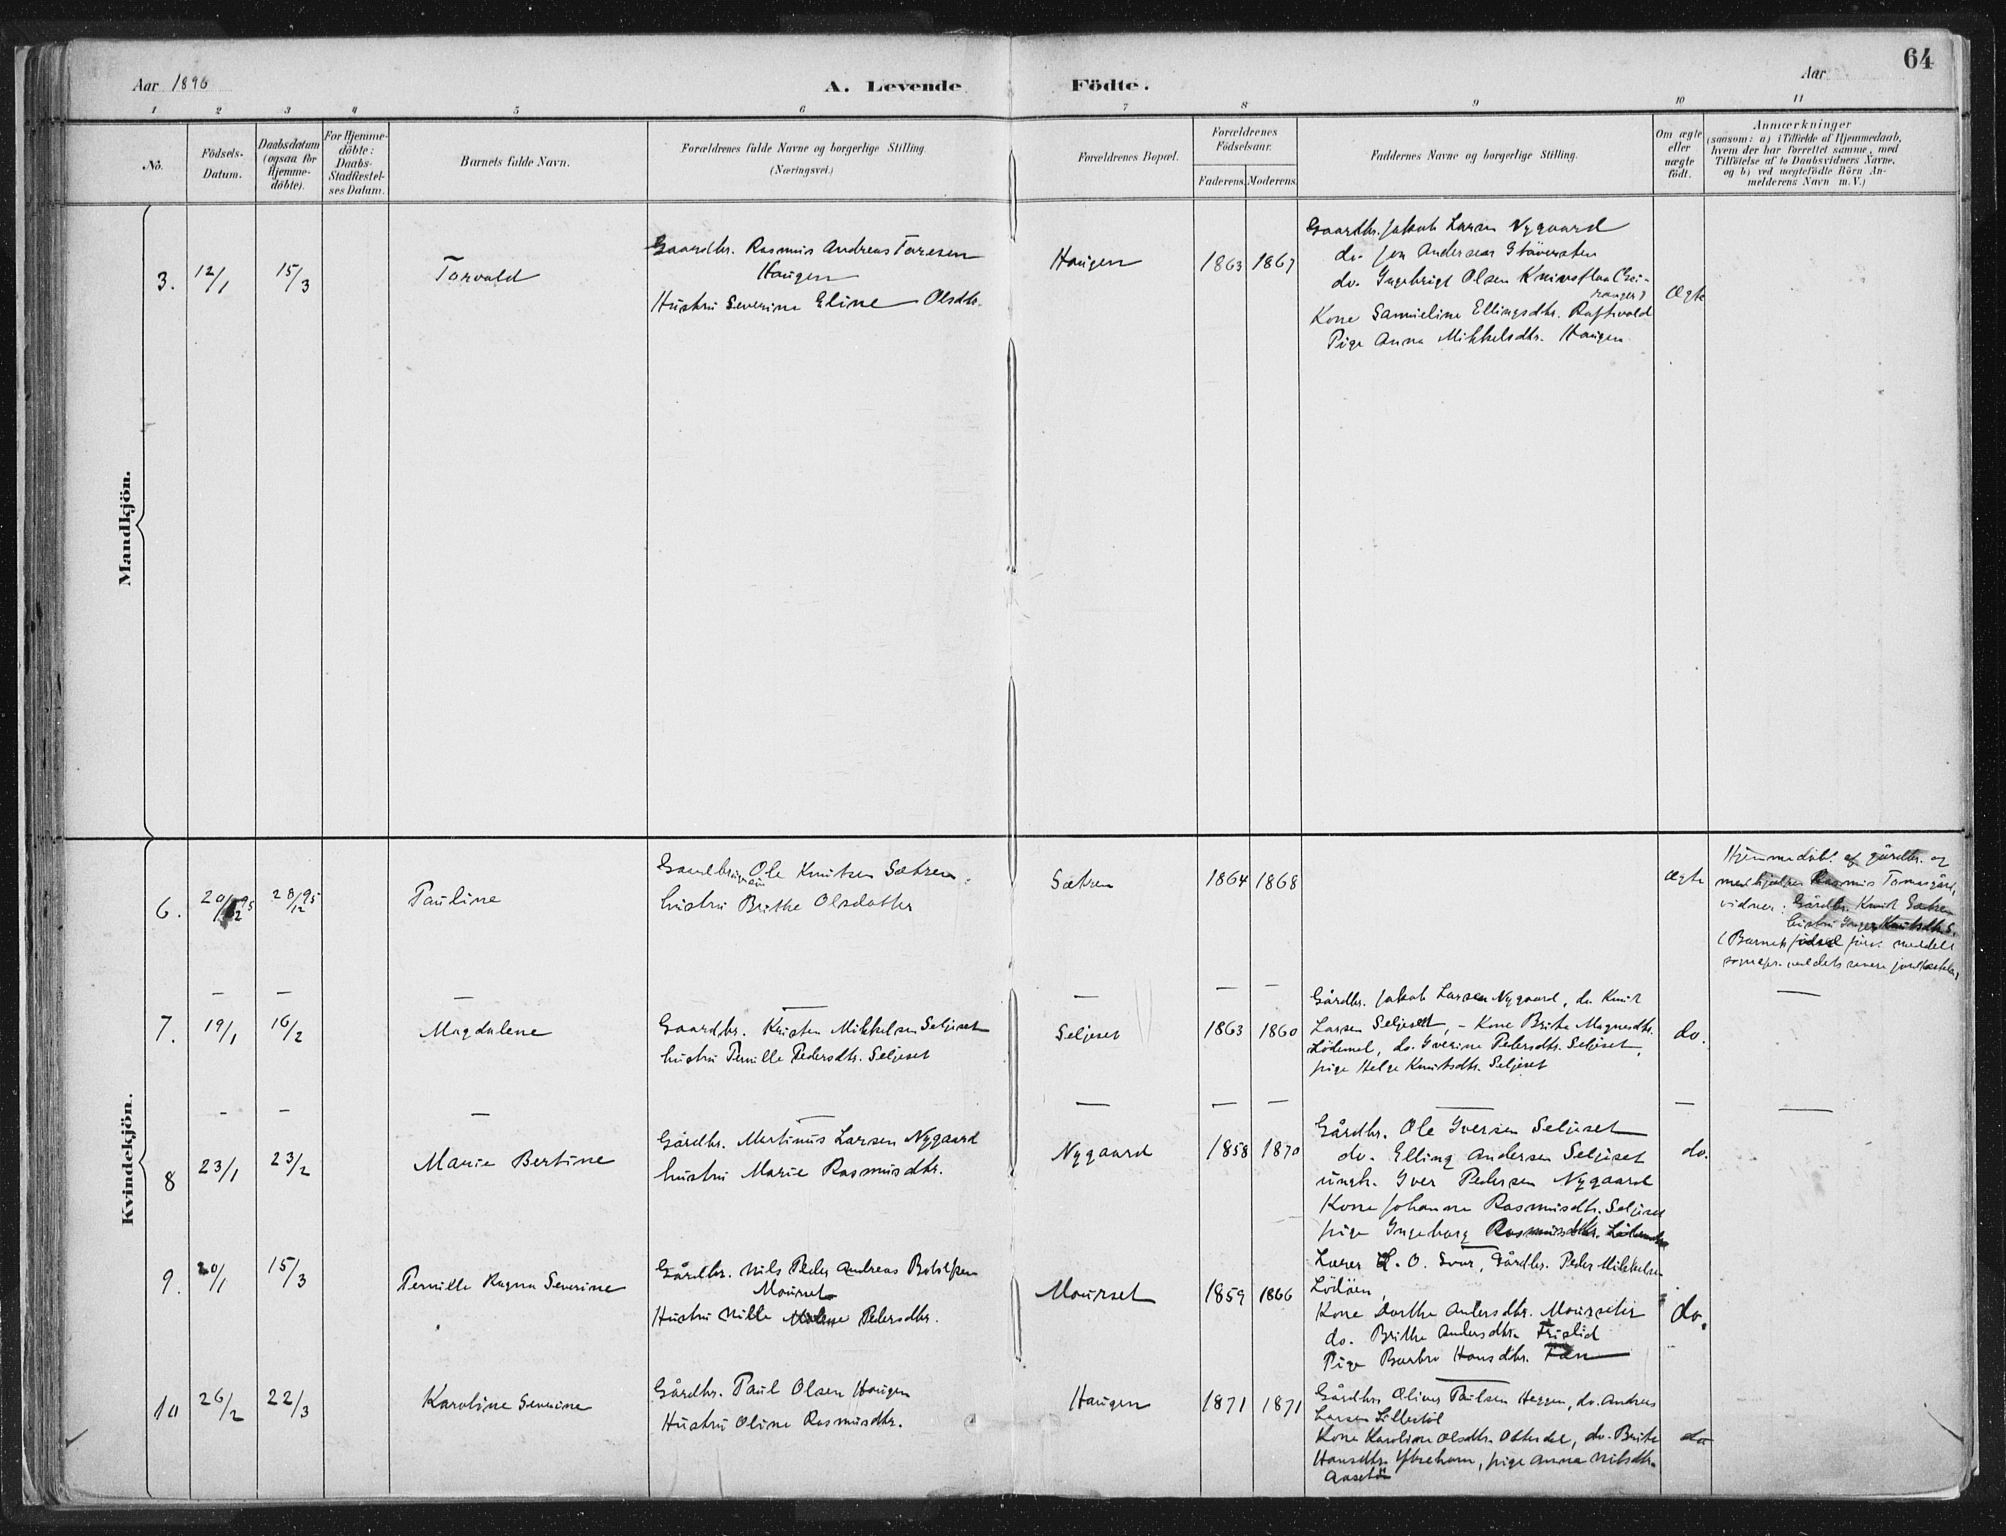 64
Aar 1896 A. Levende Födte. Aar
1 2 3 4 5 6 7 8 9 10 11
No.
Födsels-
Datum.
Daabsdatum
(ogsaa for
Hjemme-
döbte).
For Hjemme-
döbte:
Daabs-
Stadfæstel-
ses Datum.
Barnets fulde Navn.
Forældrenes fulde Navne og borgerlige Stilling.
(Næringsvei.)
Forældrenes Bopæl.
Forældrenes
Födselsaar.
Faderens. Moderens.
Faddernes Navne og borgerlige Stilling.
Om ægte
eller
uægte
födt.
Anmærkninger
(saasom: a) i Tilfælde af Hjemmedaab,
hvem der har forrettet samme, med
Tilföielse af to Daabsvidners Navne,
og b) ved uægtefödte Börn An-
melderens Navn m. V.)
Mandkjön.
3. 12/1 15/3 Torvald
Gaardbr. Rasmus Andreas Toresen
Haugen
Hustru Severine Eline Olsdtr.
Haugen 1863 1867
Gaardbr. Jakob Larsen Nygaard
do. Jon Andersen
do. Ingebrigt Olsen Knivsflaa (Gei-
ranger)
Kone Samueline Ellingsdtr. Raftevold
Pige Anna Mikkelsdtr. Haugen
Ægte
Kvindekjön.
6. 20/12 95 28/12 95 Pauline
Ole Knutsen Sætren
hustru Brithe Olsdatter
Sætren 1864 1868
Ægte
Hjemmedöbt af gårdbr. og
Rasmus Tomasgård,
vidner: Gårdbr. Knut Sætre
hustru Inger Knutsdtr S.
(Barnets födsel
7. 19/1 16/2 Magdalene
Gaardbr. Kristen Mikkelsen Seljeset
hustru Pernille Pedersdtr. Seljeset
Seljeset 1863 1860
Gårdbr. Jakob Larsen Nygaard, do Knut
Larsen Seljeset, – Kone Brite Magnesdtr.
Lödemel, do. Iverine Pedersdtr. Seljeset,
pige Helge Knutsdtr. Seljeset
do.
8 23/1 23/2 Marie Bertine
Gårdbr. Martinus Larsen Nygaard
hustru Marie Rasmusdtr.
Nygaard 1858 1870
Gårdbr. Ole Iversen Seljeset
do. Elling Andersen Seljeset
ungk. Iver Pedersen Nygaard
Kone Johanne Rasmusdtr. Seljeset
pige Ingeborg Rasmusdtr.
do.
9. 20/1 15/3 Pernille Ragna Severine
Gårdbr. Nils Peder Andreas
Mourset
Hustru Nille Malene Pedersdtr.
Mourset 1859 1866
Lærer L. O. Svor, Gårdbr. Peder Mikkelsen
Lödöen,
Kone Dorthe Andersdtr. Mourseter
do. Brithe Andersdtr. Frislid
Pige Barbro Hansdtr. Fan
do.
10 26/2 22/3 Karoline Severine
Gårdbr. Paul Olsen Haugen
Hustru Oline Rasmusdtr.
Haugen 1871 1871
Gårdbr. Oliver Paulsen Heggen, do. Andreas
Larsen Lillestöl
Kone Karoline Olsdtr. Otterdal, do. Brite
Hansdtr. Ytrehorn, pige Anna Nilsdtr.
do